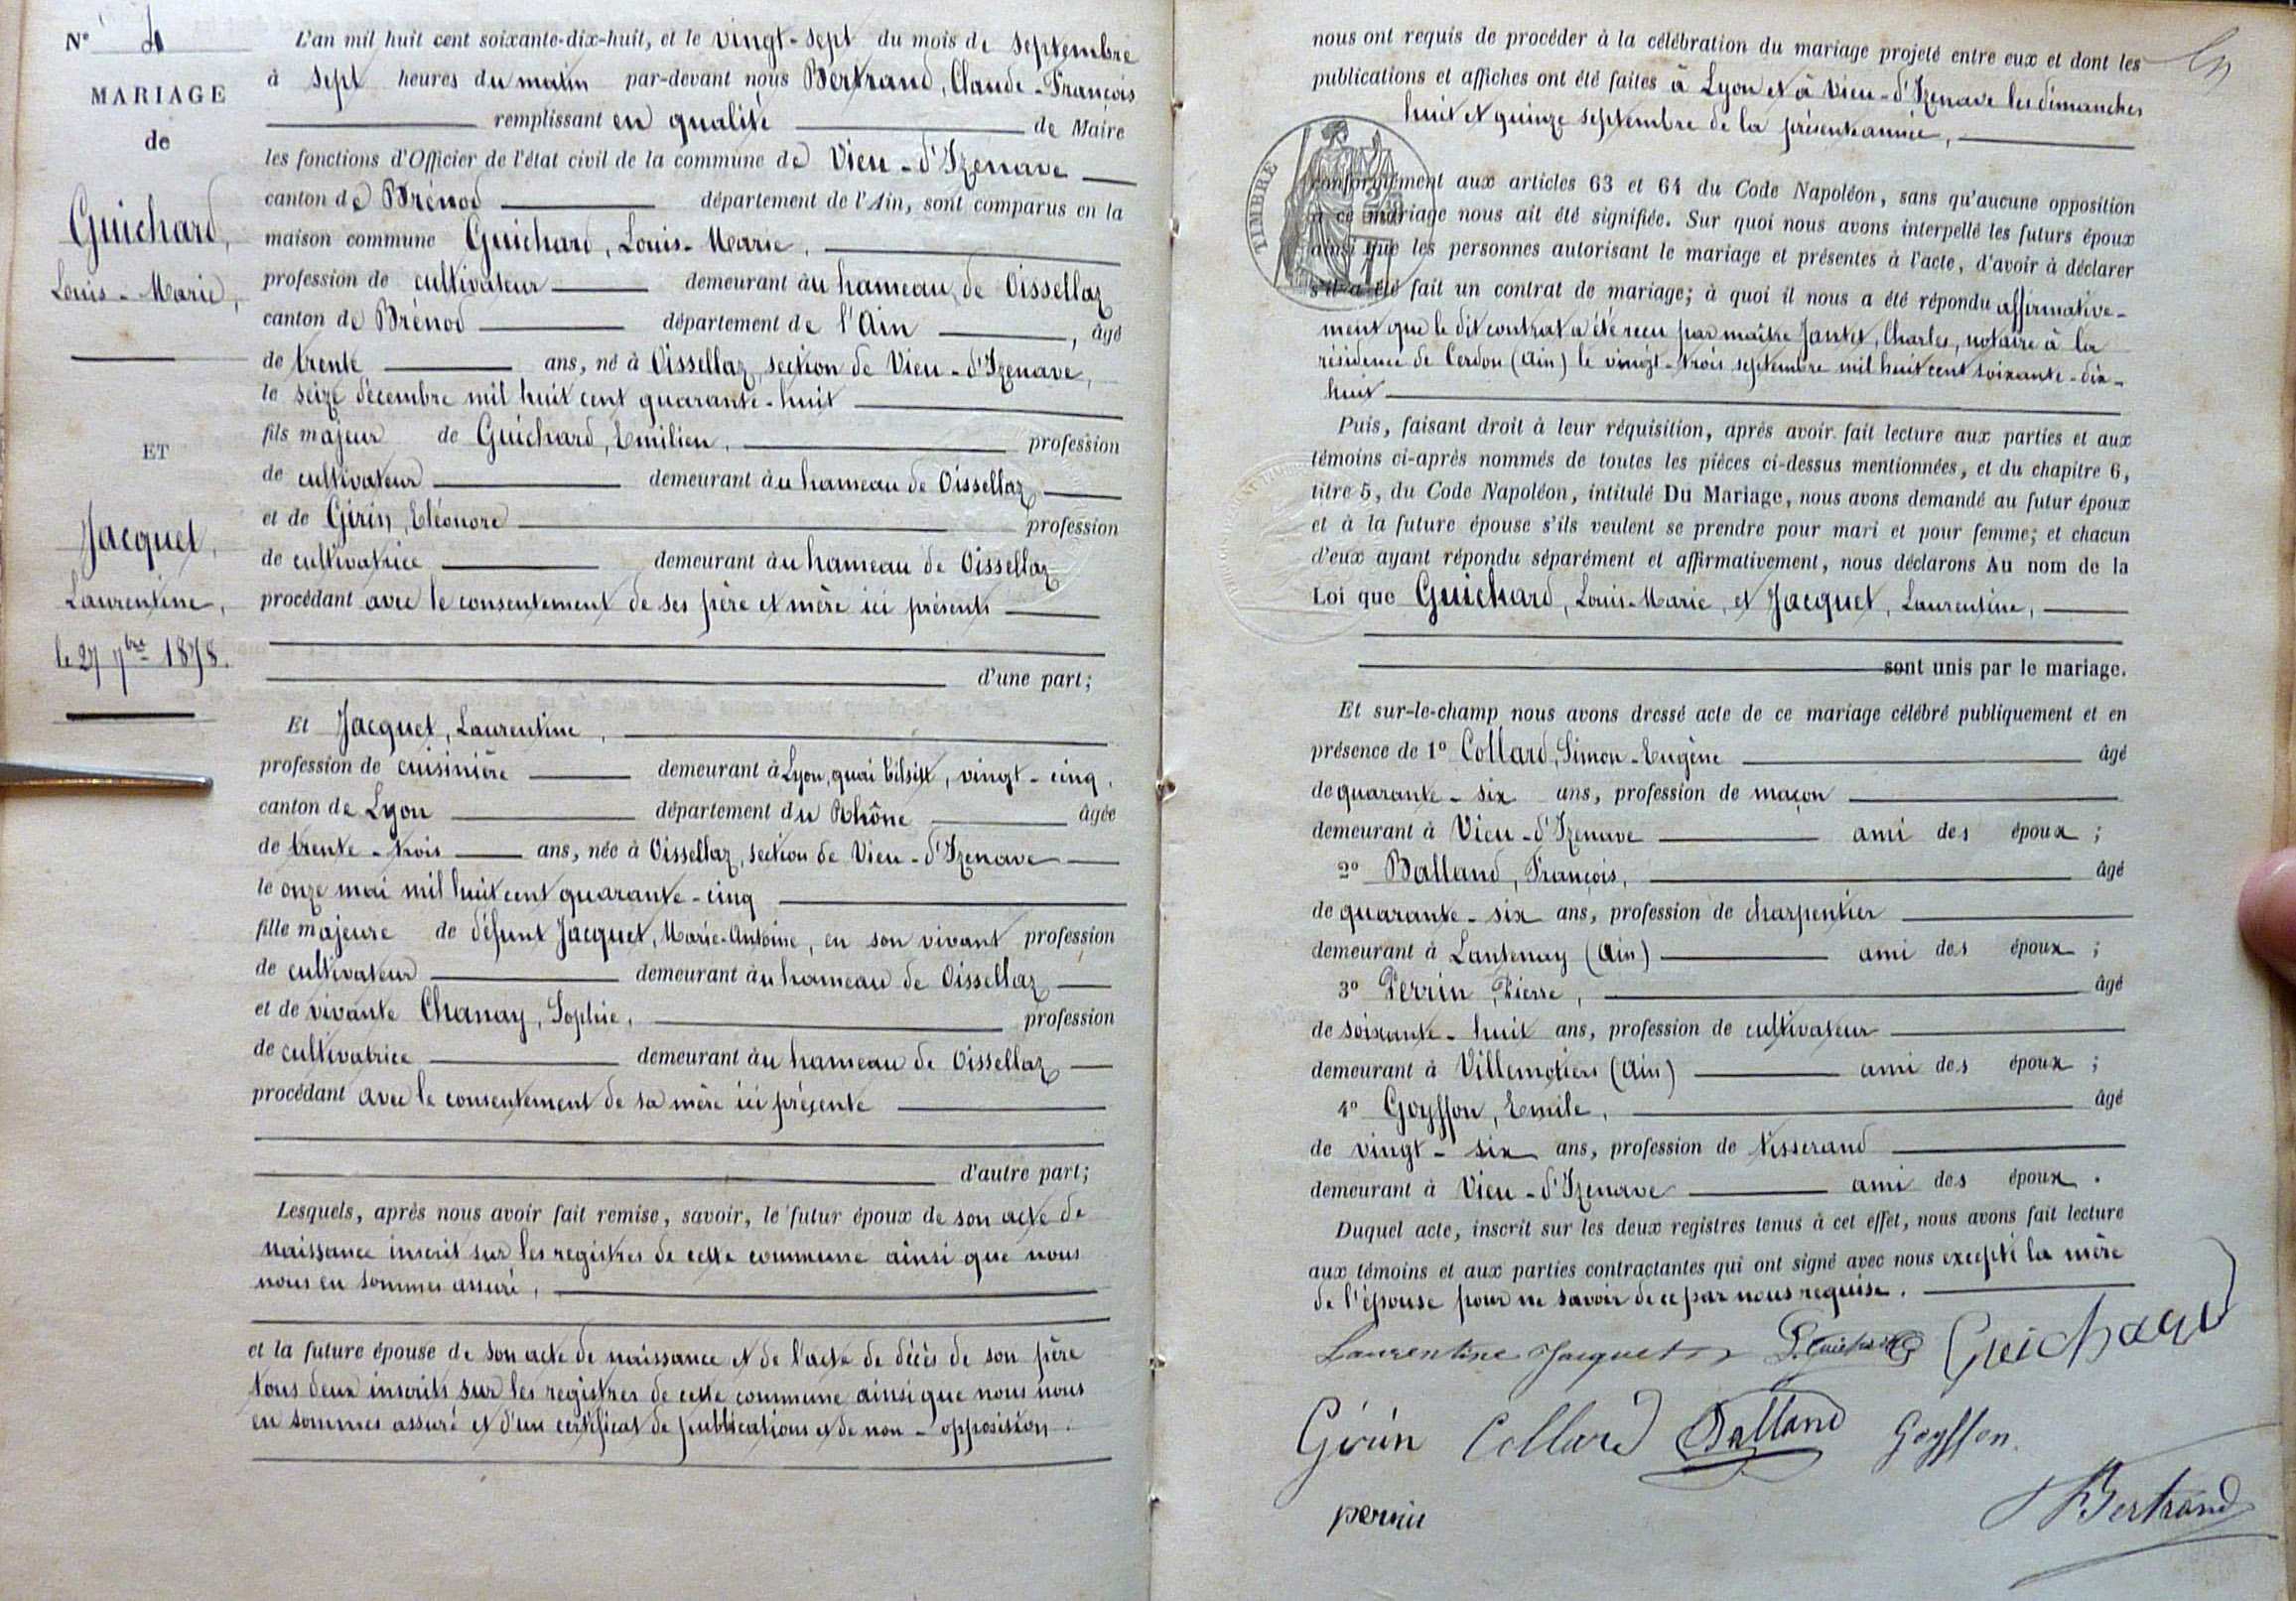 N° 4
MARIAGE
de
Guichard,
Louis-Marie,
ET
Jacquet,
Laurentine,
le 27 7bre 1878.
L'an mil huit cent soixante-dix-huit, et le vingt-sept du mois de septembre
à sept heures du matin par-devant nous Bertrand, Claude-François
remplissant en qualité de Maire
les fonctions d'Officier de l'état civil de la commune de Vieu-d'Izenave
canton de Brénod département de l'Ain, sont comparus en la
maison commune Guichard, Louis-Marie,
profession de cultivateur demeurant au hameau de Oissellaz
canton de Brénod département de l'Ain, âgé
de trente ans, né à Oissellaz, section de Vieu-d'Izenave,
le seize décembre mil huit cent quarante-huit
fils majeur de Guichard, Emilien, profession
de cultivateur demeurant au hameau de Oissellaz
et de Girin, Eléonore profession
de cultivatrice demeurant au hameau de Oissellaz
procédant avec le consentement de ses père et mère ici présents
d'une part;
Et Jacquet, Laurentine,
profession de cuisinière demeurant à Lyon, quai Tilsitt, vingt-cinq,
canton de Lyon département du Rhône âgée
de trente-trois ans, née à Oissellaz, section de Vieu-d'Izenave
le onze mai mil huit cent quarante-cinq
fille majeure de défunt Jacquet, Marie-Antoine, en son vivant profession
de cultivateur demeurant au hameau de Oissellaz
et de vivante Chanay, Sophie, profession
de cultivatrice demeurant au hameau de Oissellaz
procédant avec le consentement de sa mère ici présente
d'autre part;
Lesquels, après nous avoir fait remise, savoir, le futur époux de son acte de
naissance inscrit sur les registres de cette commune ainsi que nous
nous en sommes assuré,
et la future épouse de son acte de naissance et de l'acte de décès de son père
tous deux inscrits sur les registres de cette commune ainsi que nous nous
en sommes assuré et d'un certificat de publications et de non-opposition.
nous ont requis de procéder à la célébration du mariage projeté entre eux et dont les
publications et affiches ont été faites à Lyon et à Vieu-d'Izenave les dimanches
huit et quinze septembre de la présente année,
TIMBRE
conformément aux articles 63 et 64 du Code Napoléon, sans qu'aucune opposition
à ce mariage nous ait été signifiée. Sur quoi nous avons interpellé les futurs époux
ainsi que les personnes autorisant le mariage et présentes à l'acte, d'avoir à déclarer
s'il a été fait un contrat de mariage; à quoi il nous a été répondu affirmative-
ment que le dit contrat a été reçu par maître Jantet, Charles, notaire à la
résidence de Cerdon (Ain) le vingt-trois septembre mil huit cent soixante-dix-
huit
Puis, faisant droit à leur réquisition, après avoir fait lecture aux parties et aux
témoins ci-après nommés de toutes les pièces ci-dessus mentionnées, et du chapitre 6,
titre 5, du Code Napoléon, intitulé Du Mariage, nous avons demandé au futur époux
et à la future épouse s'ils veulent se prendre pour mari et pour femme; et chacun
d'eux ayant répondu séparément et affirmativement, nous déclarons Au nom de la
Loi que Guichard, Louis-Marie, et Jacquet, Laurentine,
sont unis par le mariage.
Et sur-le-champ nous avons dressé acte de ce mariage célébré publiquement et en
présence de 1° Collard, Simon-Eugène âgé
de quarante-six ans, profession de maçon
demeurant à Vieu-d'Izenave ami des époux;
2° Balland, François, âgé
de quarante-six ans, profession de charpentier
demeurant à Lantenay (Ain) ami des époux;
3° Perrin, Pierre, âgé
de soixante-huit ans, profession de cultivateur
demeurant à Villemotiers (Ain) ami des époux;
4° Goyffon, Emile, âgé
de vingt-six ans, profession de tisserand
demeurant à Vieu-d'Izenave ami des époux.
Duquel acte, inscrit sur les deux registres tenus à cet effet, nous avons fait lecture
aux témoins et aux parties contractantes qui ont signé avec nous excepté la mère
de l'épouse pour ne savoir de ce par nous requise.
Laurentine Jacquet Guichard
Girin Collard Balland Goyffon
perrin Bertrand